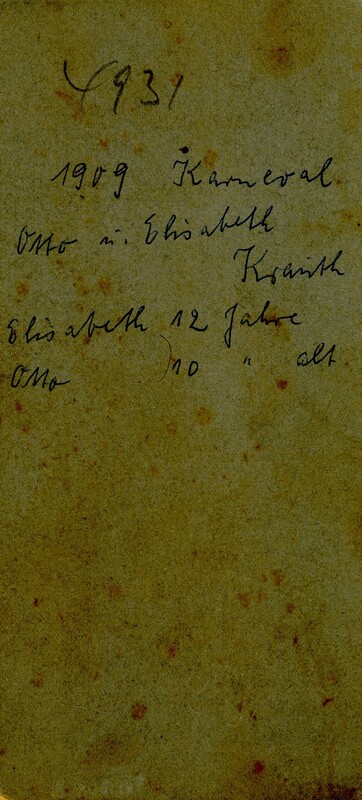 4931
1909 Karneval
Otto u. Elisabeth
Krauth
Elisabeth 12 Jahre
Otto )10 " alt